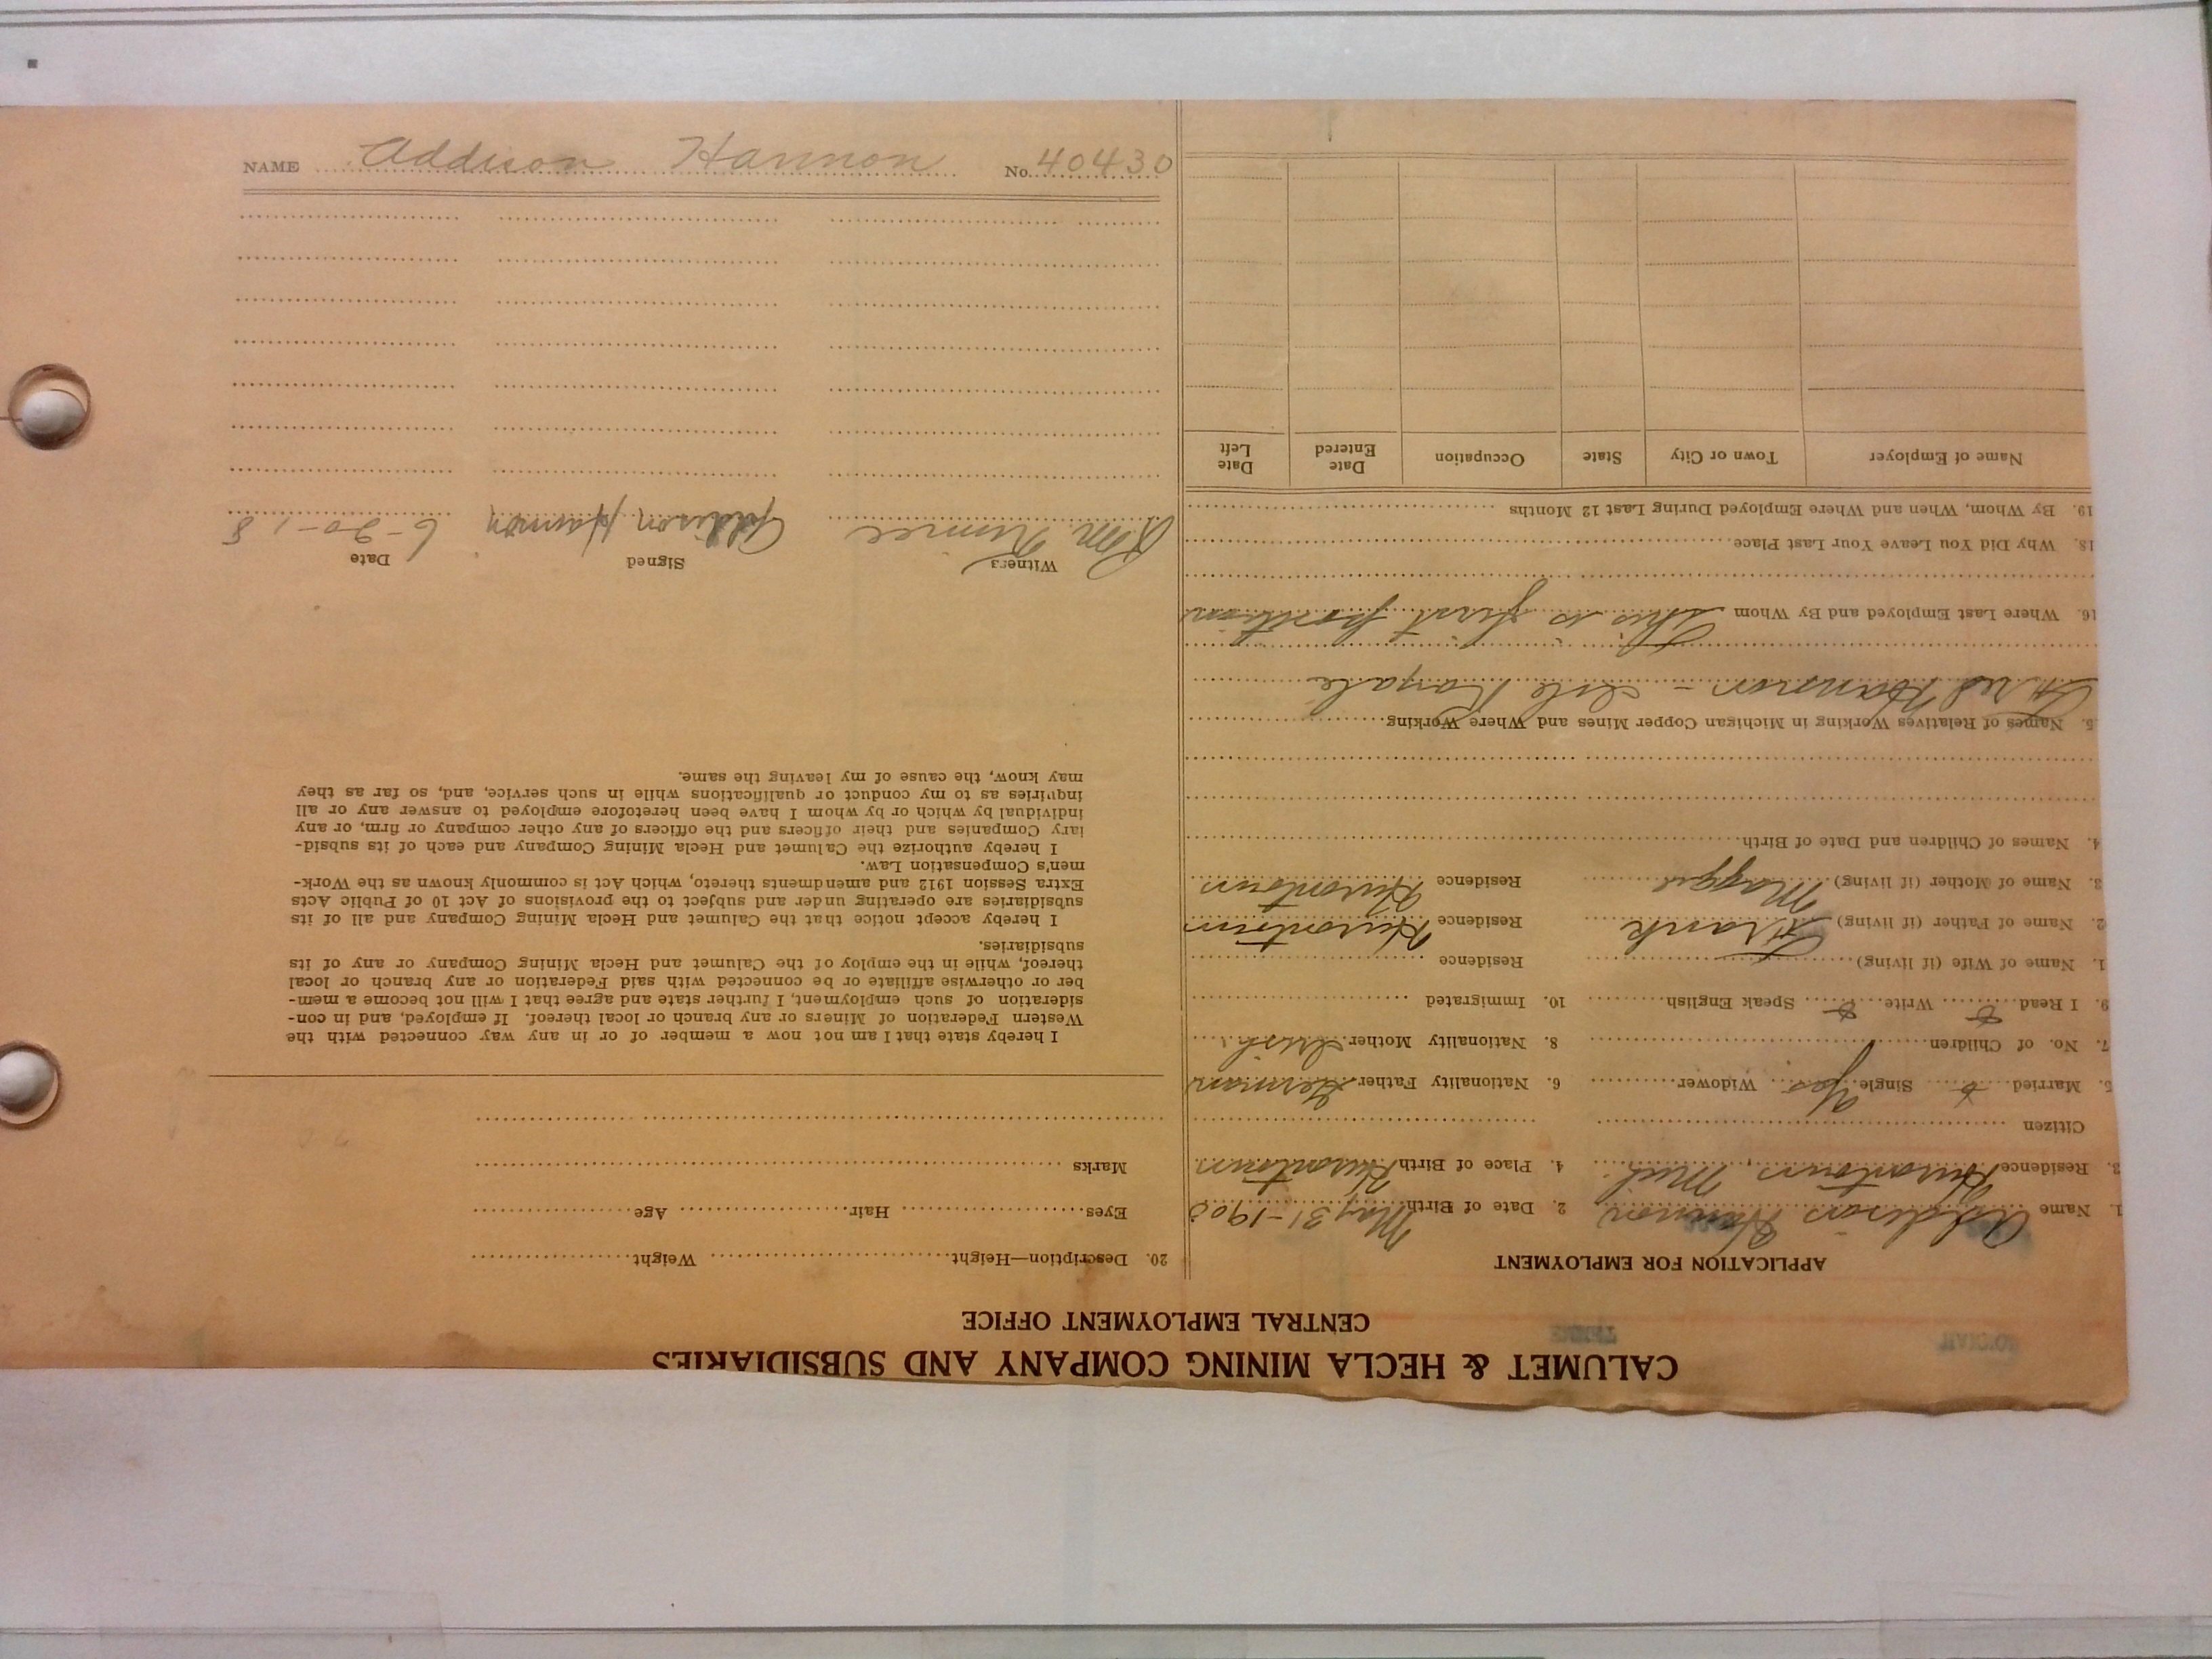 CALUMET & HECLA MINING COMPANY AND SUBSIDIARIES
CENTRAL EMPLOYMENT OFFICE
APPLICATION FOR EMPLOYMENT
1. Name Addison Hannon 2. Date of Birth May 31-1900
3. Residence Hurontown, Mich. 4. Place of Birth Hurontown
Citizen
5. Married Single Yes Widower 6. Nationality Father German
7. No. of Children 8. Nationality Mother Irish
9. I Read Write Speak English 10. Immigrated
1. Name of Wife (if living) Residence
2. Name of Father (if living) Frank Residence Hurontown
3. Name of Mother (if living) Maggie Residence Hurontown
4. Names of Children and Date of Birth
5. Names of Relatives Working in Michigan Copper Mines and Where Working
Fred Hannon - Isle Royale
16. Where Last Employed and By Whom This is first position
18. Why Did You Leave Your Last Place
19. By Whom, When and Where Employed During Last 12 Months
Name of Employer Town or City State Occupation Date Entered Date Left
20. Description—Height Weight
Eyes Hair Age
Marks
I hereby state that I am not now a member of or in any way connected with the
Western Federation of Miners or any branch or local thereof. If employed, and in con-
sideration of such employment, I further state and agree that I will not become a mem-
ber or otherwise affiliate or be connected with said Federation or any branch or local
thereof, while in the employ of the Calumet and Hecla Mining Company or any of its
subsidiaries.
I hereby accept notice that the Calumet and Hecla Mining Company and all of its
subsidiaries are operating under and subject to the provisions of Act 10 of Public Acts
Extra Session 1912 and amendments thereto, which Act is commonly known as the Work-
men's Compensation Law.
I hereby authorize the Calumet and Hecla Mining Company and each of its subsid-
iary Companies and their officers and the officers of any other company or firm, or any
individual by which or by whom I have been heretofore employed to answer any or all
inquiries as to my conduct or qualifications while in such service, and, so far as they
may know, the cause of my leaving the same.
Witness Signed Date
Addison Hannon 6-20-18
NAME Addison Hannon No. 40430